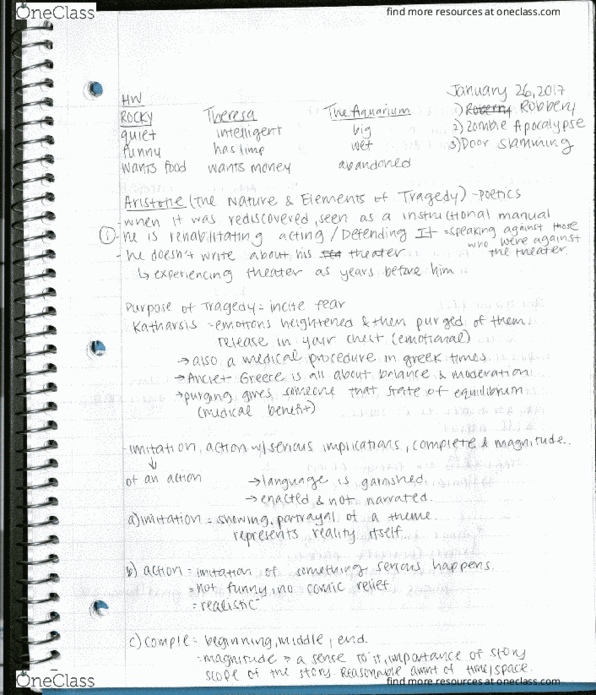 OneClass
find more resources at oneclass.com
January 26, 2017
HW
ROCKY Theresa The Aquarium 1) Robbery
quiet intelligent big 2) Zombie Apocalypse
funny has limp wet 3) Door Slamming
wants food wants money abandoned
Aristotle (The Nature & Elements of Tragedy) - Poetics
- when it was rediscovered, seen as a instructional manual
① - he is rehabilitating acting / Defending It = speaking against those who were against the theater
- he doesn't write about his theater
↳ experiencing theater as years before him
Purpose of Tragedy = incite fear
Katharsis = emotions heightened & then purged of them.
release in your chest (emotional)
→ also a medical procedure in greek times.
→ Ancient Greece is all about balance & moderation
→ purging gives someone that state of equilibrium
(medical benefit)
- imitation, action w/ serious implications, complete & magnitude.
↓
of an action → language is garnished.
→ enacted & not narrated.
a) imitation = showing, portrayal of a theme.
represents reality itself.
b) action = imitation of something serious happens.
= not funny, no comic relief
= realistic
c) comple = beginning, middle, end.
= magnitude = a sense to it, importance of story
scope of the story. Reasonable amnt of time/space.
OneClass
find more resources at oneclass.com